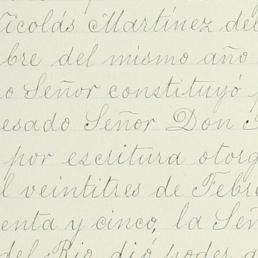 Nicolás Martínez del
bre del mismo año
o Señor constituyó
esado Señor Don
por escritura otorg
l veintitres de Febr
enta y cinco, la Señ
del Rio dió poder a